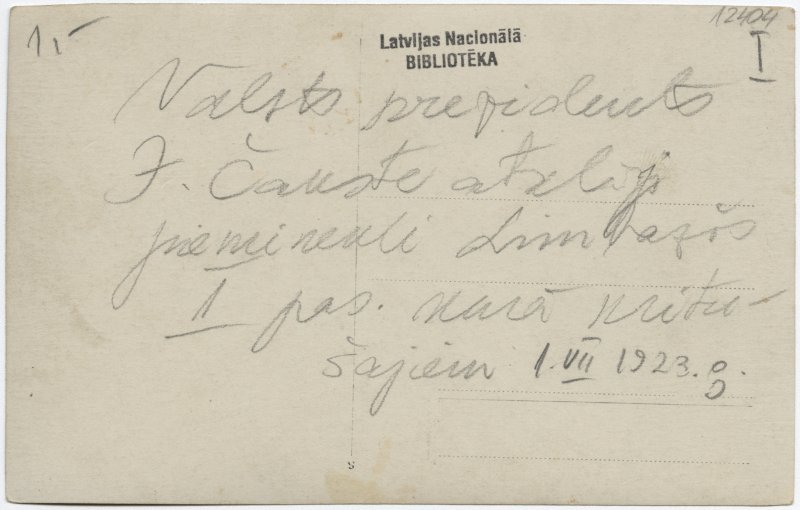 1,-
12404
I
Latvijas Nacionālā
BIBLIOTĒKA
Valsts prezidents
J. Čakste atklāj
pieminekli Limbažos
1 pas. karā kritu-
šajiem 1.VII 1923. g.